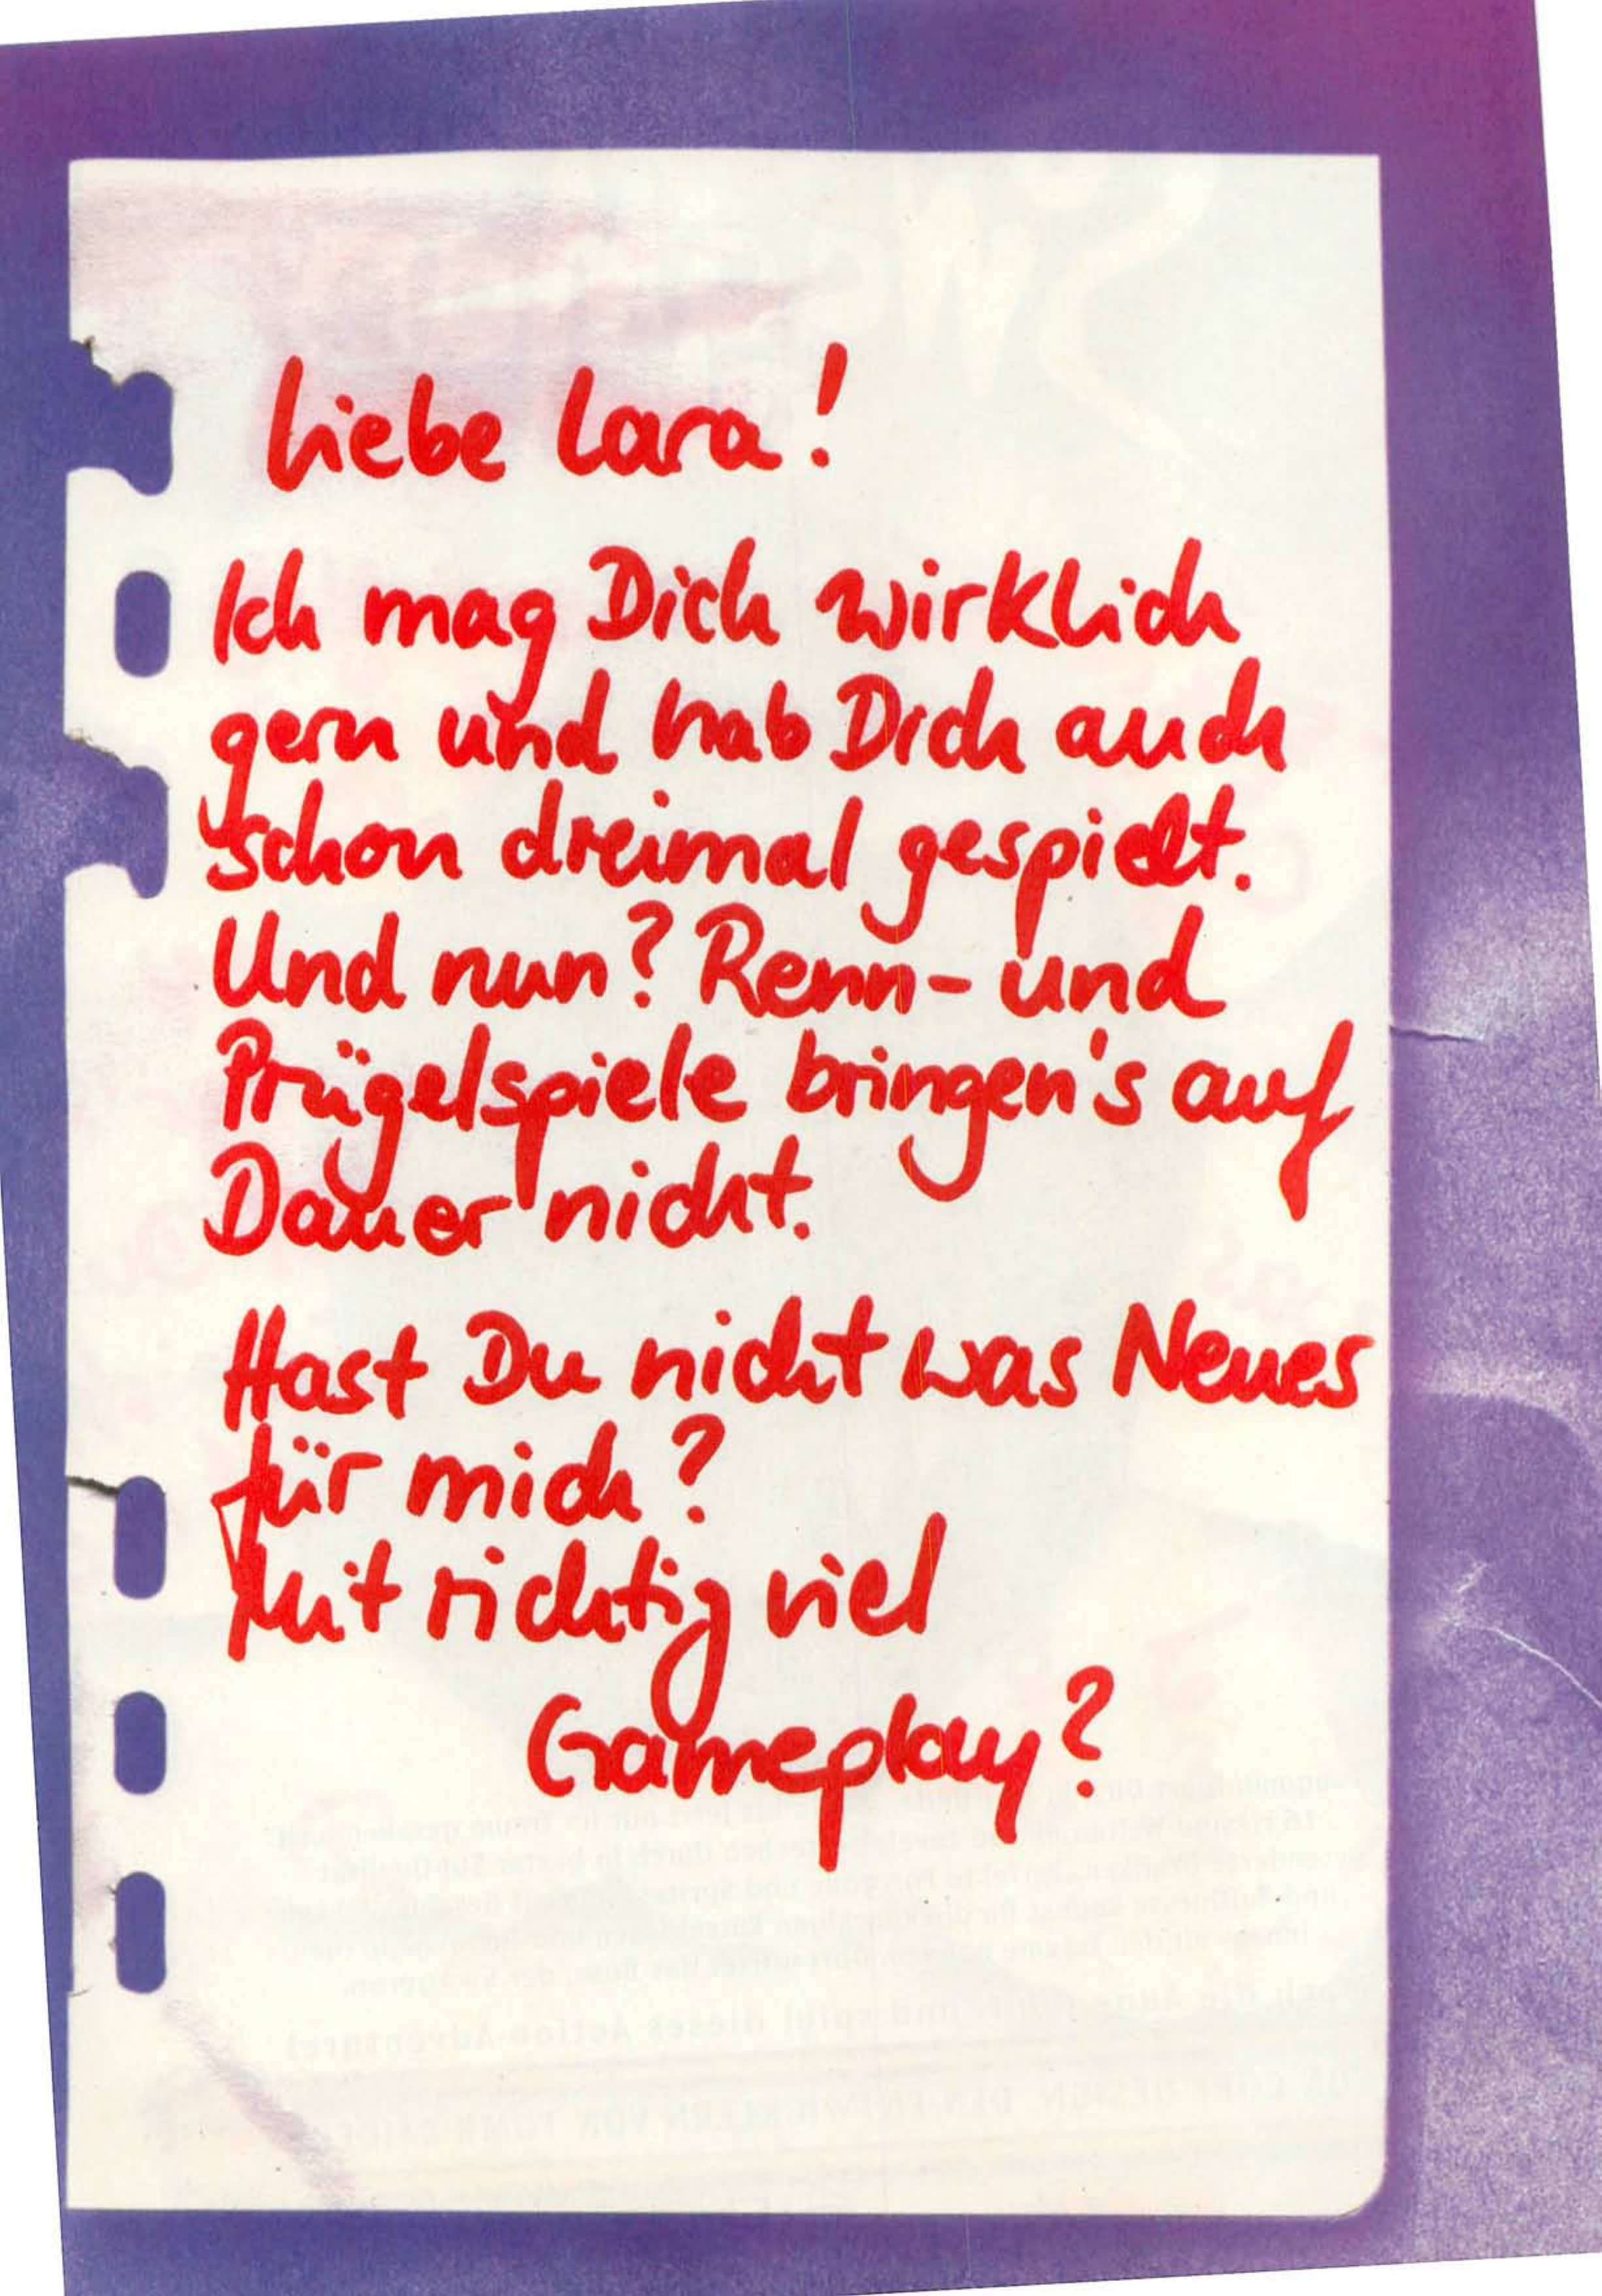 Liebe Lara!
Ich mag Dich wirklich
gern und hab Dich auch
schon dreimal gespielt.
Und nun? Renn- und
Prügelspiele bringen's auf
Dauer nicht.
Hast Du nicht was Neues
für mich?
Mit richtig viel
Gameplay?